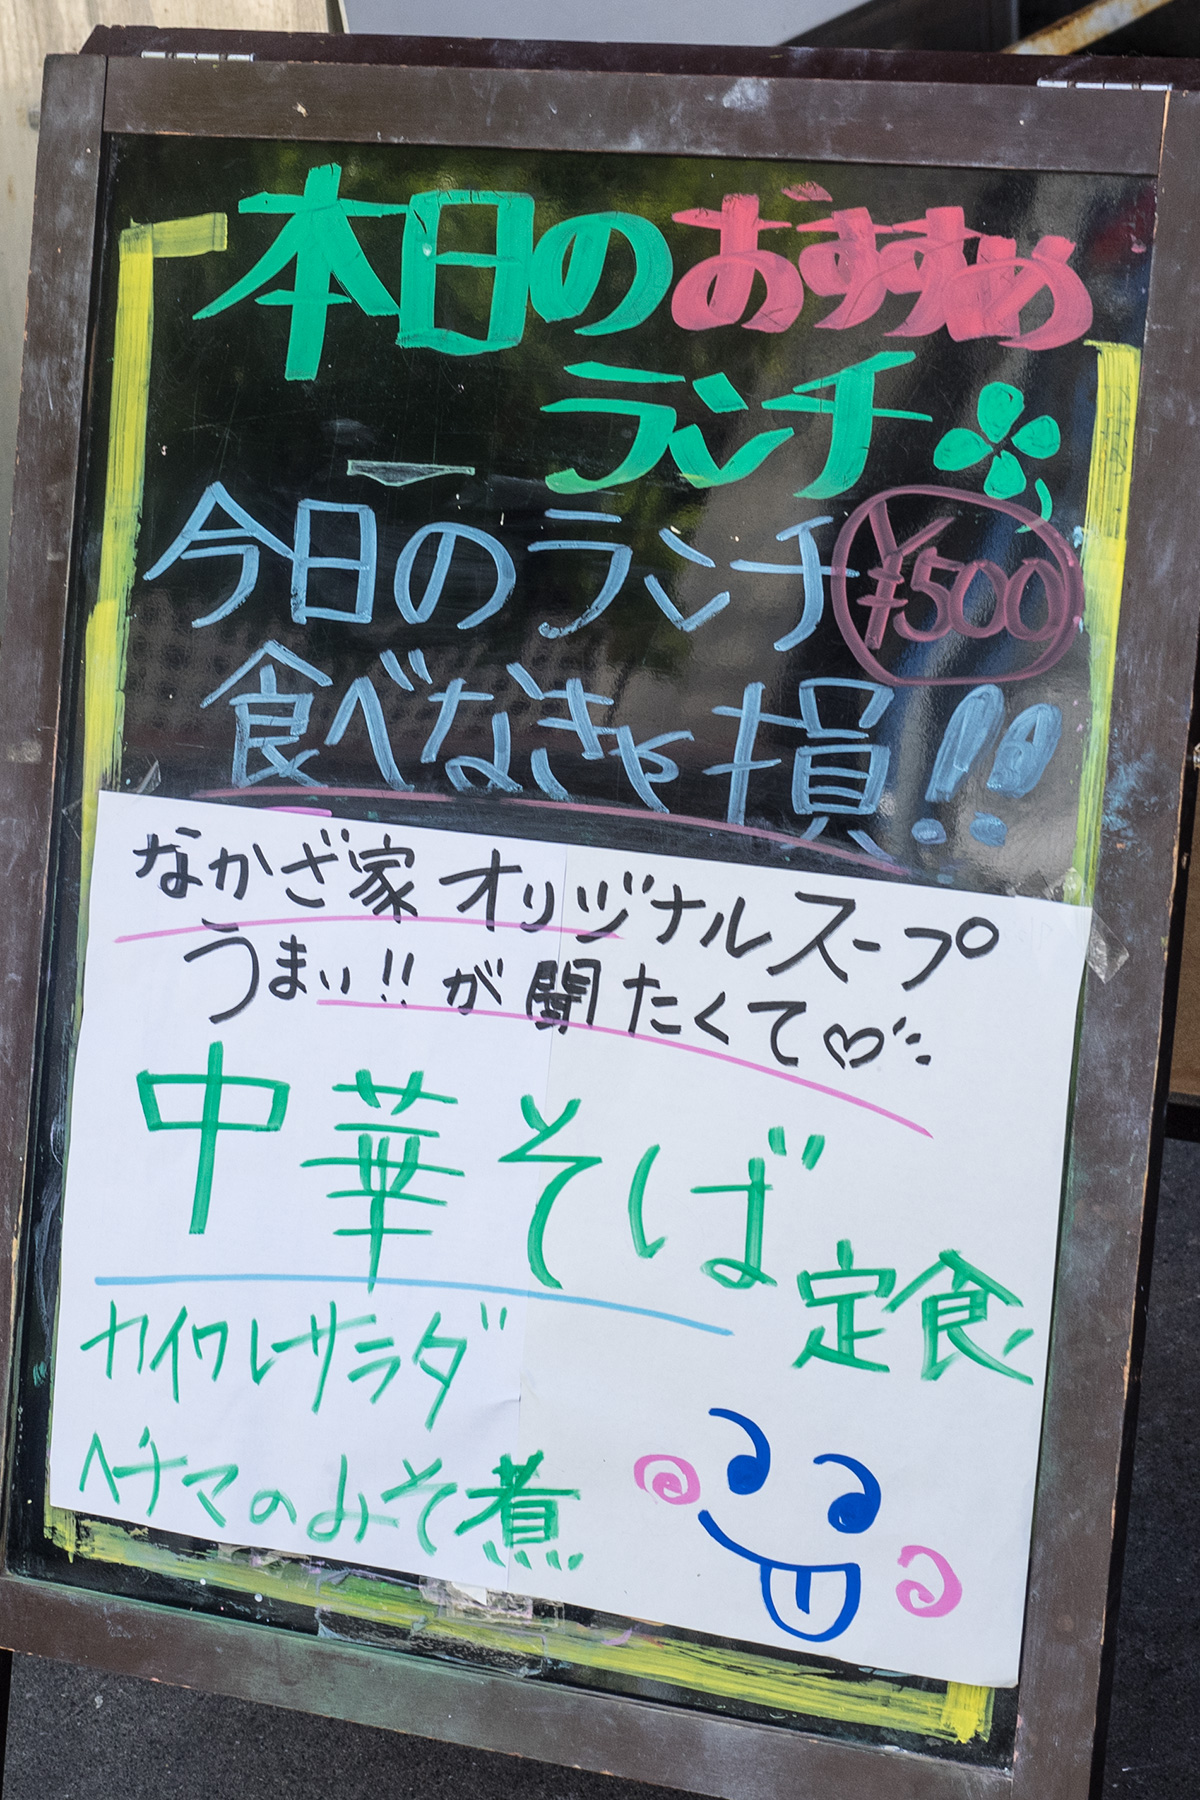 本日のおすすめ
ランチ
今日のランチ ¥500
食べなきゃ損!!
なかざ家 オリジナルスープ
うまい!!が聞たくて♡
中華そば定食
カイワレサラダ
ヘチマのみそ煮